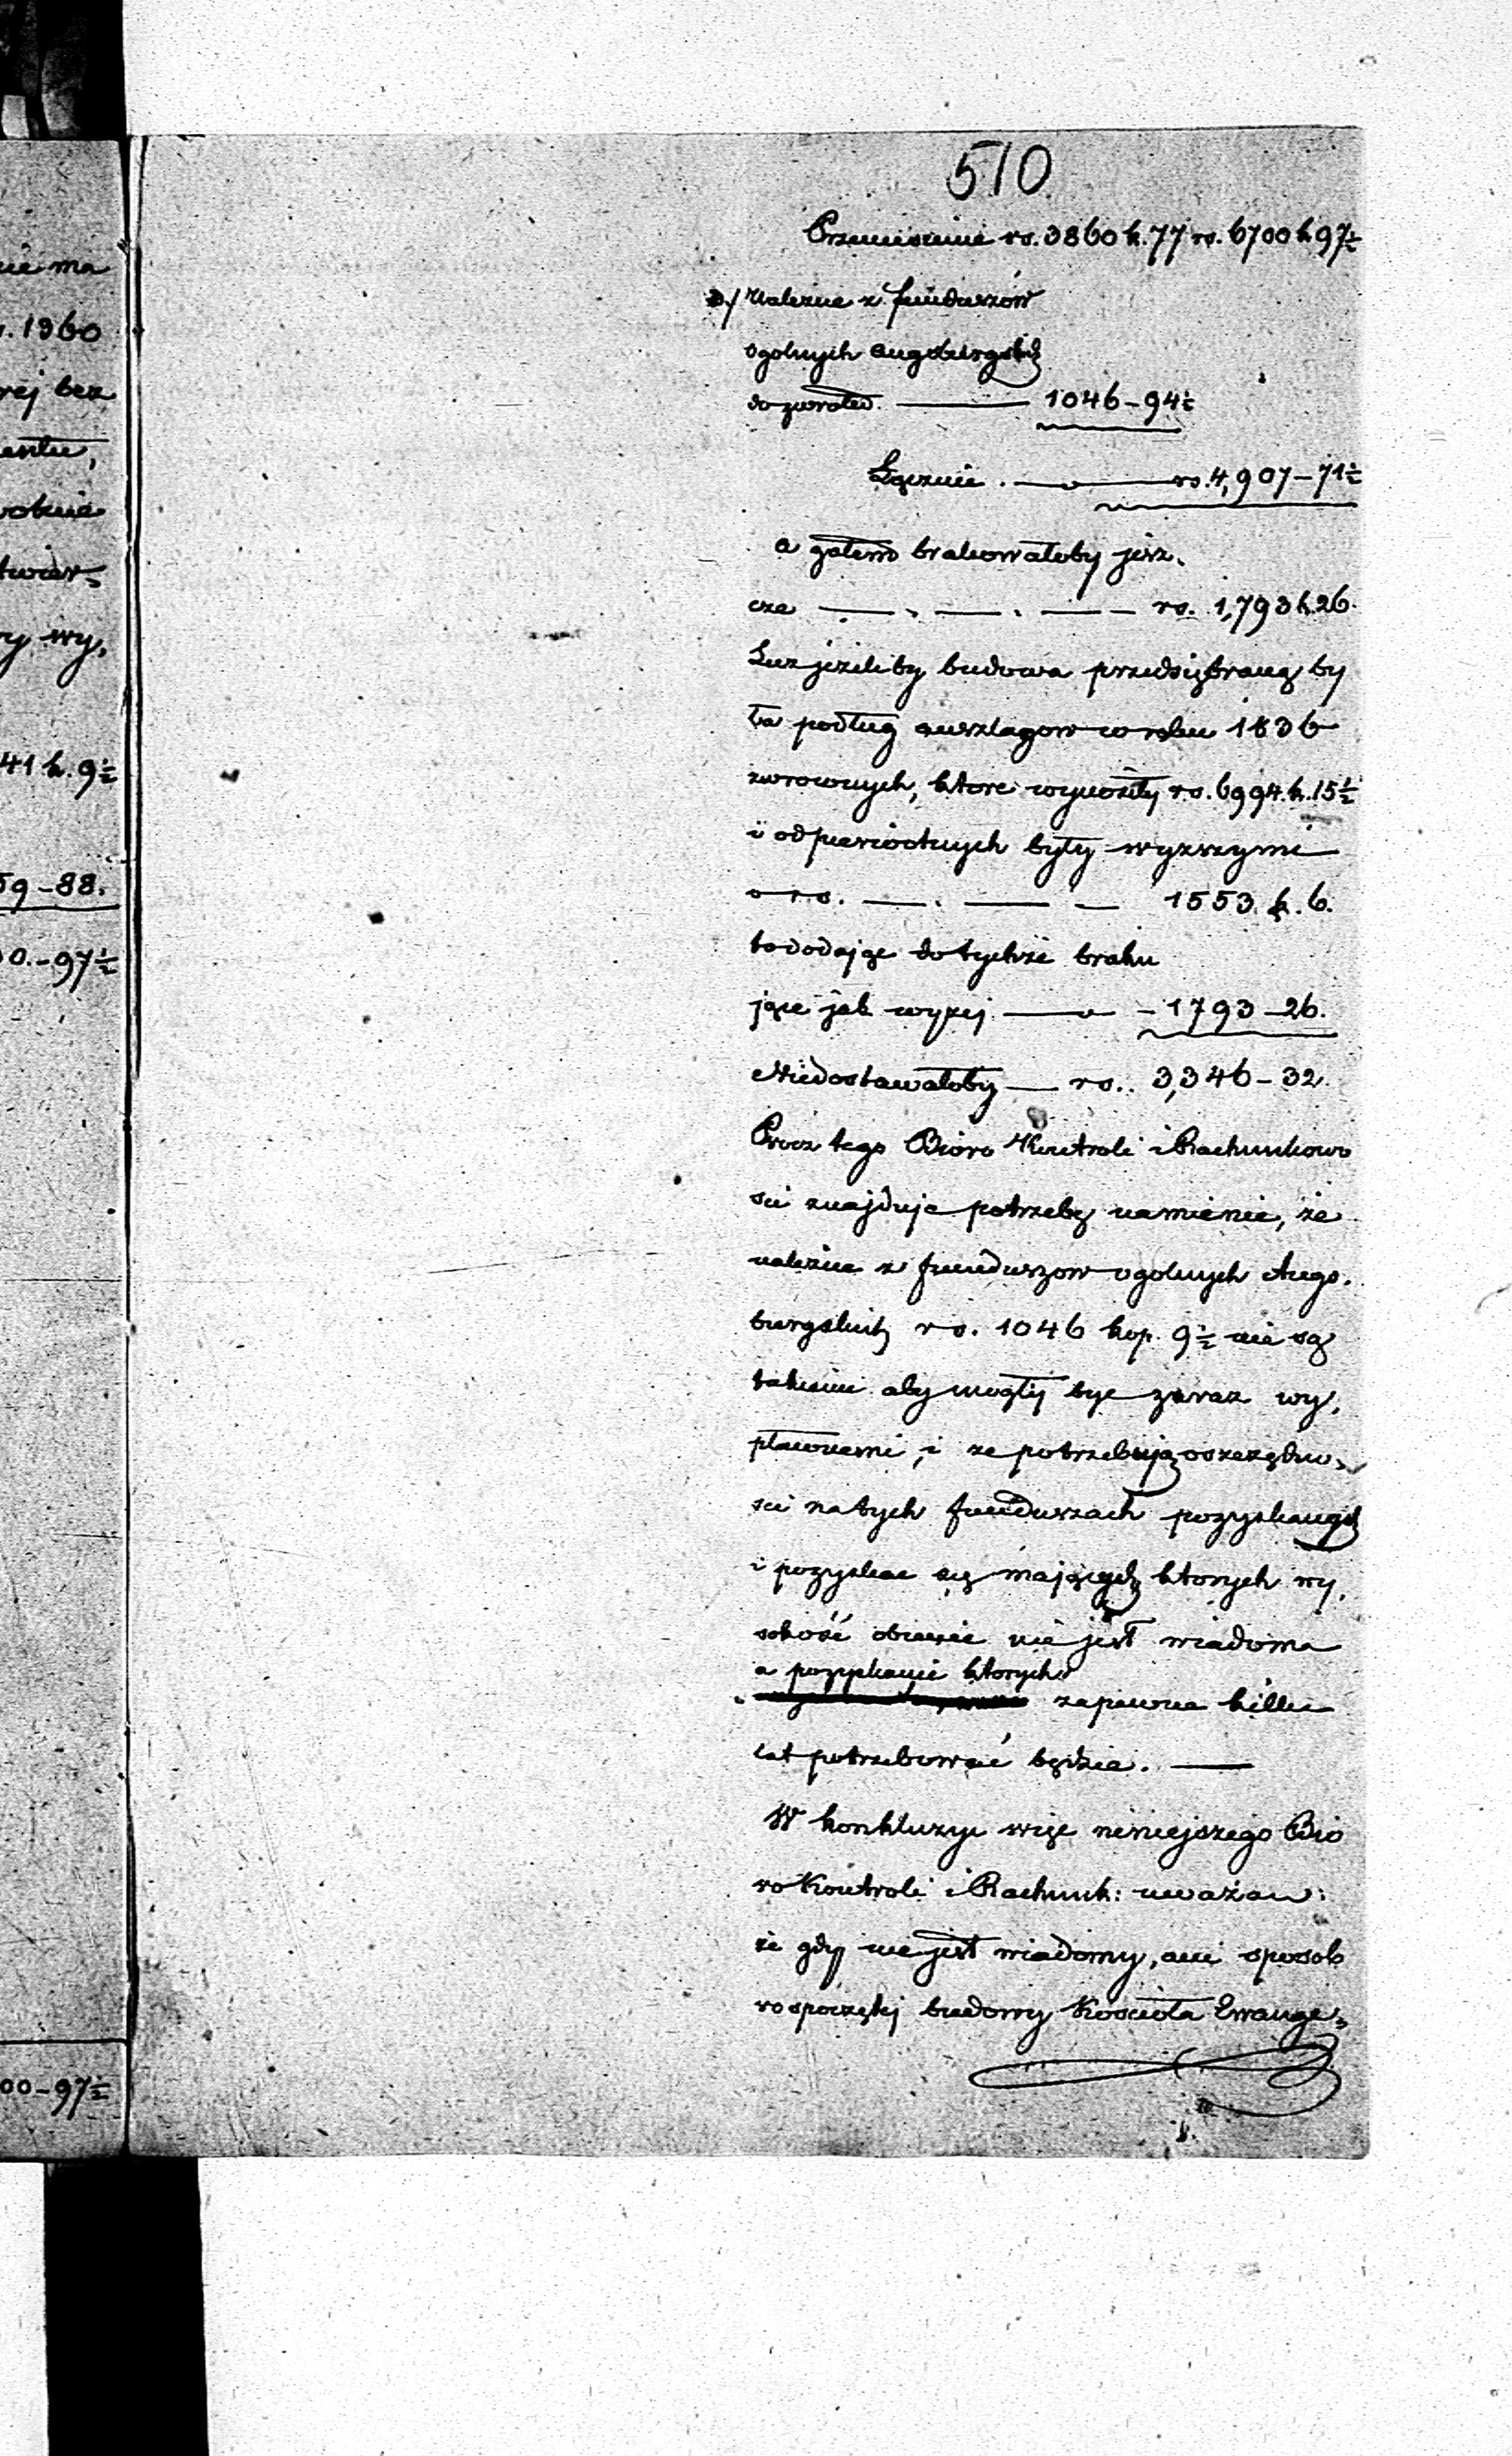 510
Przeniesienie rs. 3860 k. 77 rs. 6700 k 97½
D./ Należne z funduszów
ogolnych augsburgskich
do zwrotu. — 1046 – 94½
Łącznie . — rs. 4,907 – 71½
a zatem brakowałoby jesz,
cze — . — . — rs. 1,793 k. 26.
Lecz jeżeliby budowa przedsiębraną by
ła podług auszlagow w roku 1836
zwroconych, ktore wynosiły rs. 6994. k. 15½
i od pierwiotnych były wyzszymi
o rs. — . — — 1553. k. 6.
to dodając do tychże braku
jące jak wyżej — – 1793 – 26.
Niedostawałoby — rs.. 3,346 – 32.
Procz tego Bioro Kontroli i Rachunkowo
sci znajduje potrzebę namienic, że
należne z funduszow ogolnych Augs.
burgskich rs. 1046 kop. 9½ nie są
takiemi aby mogły byc zaraz wy,
płaconemi, i ze potrzebują oszczędno,
sci na tych funduszach pozyskanych
i pozyskac się mających ktorych wy,
sokość obecnie nie jest wiadoma
a pozyskanie ktorych
zapewne kilku
lat potrzebować będzie. —
W konkluzyi więc niniejszego Bio
ro Kontroli i Rachunk: uważam:
że gdy nie jest wiadomy, ani sposob
rospoczętej budowy Koscioła Ewange,
nie ma
. 1960
rej bez
wy,
41 k. 9½
59 – 88.
0. – 97½
00 – 97½